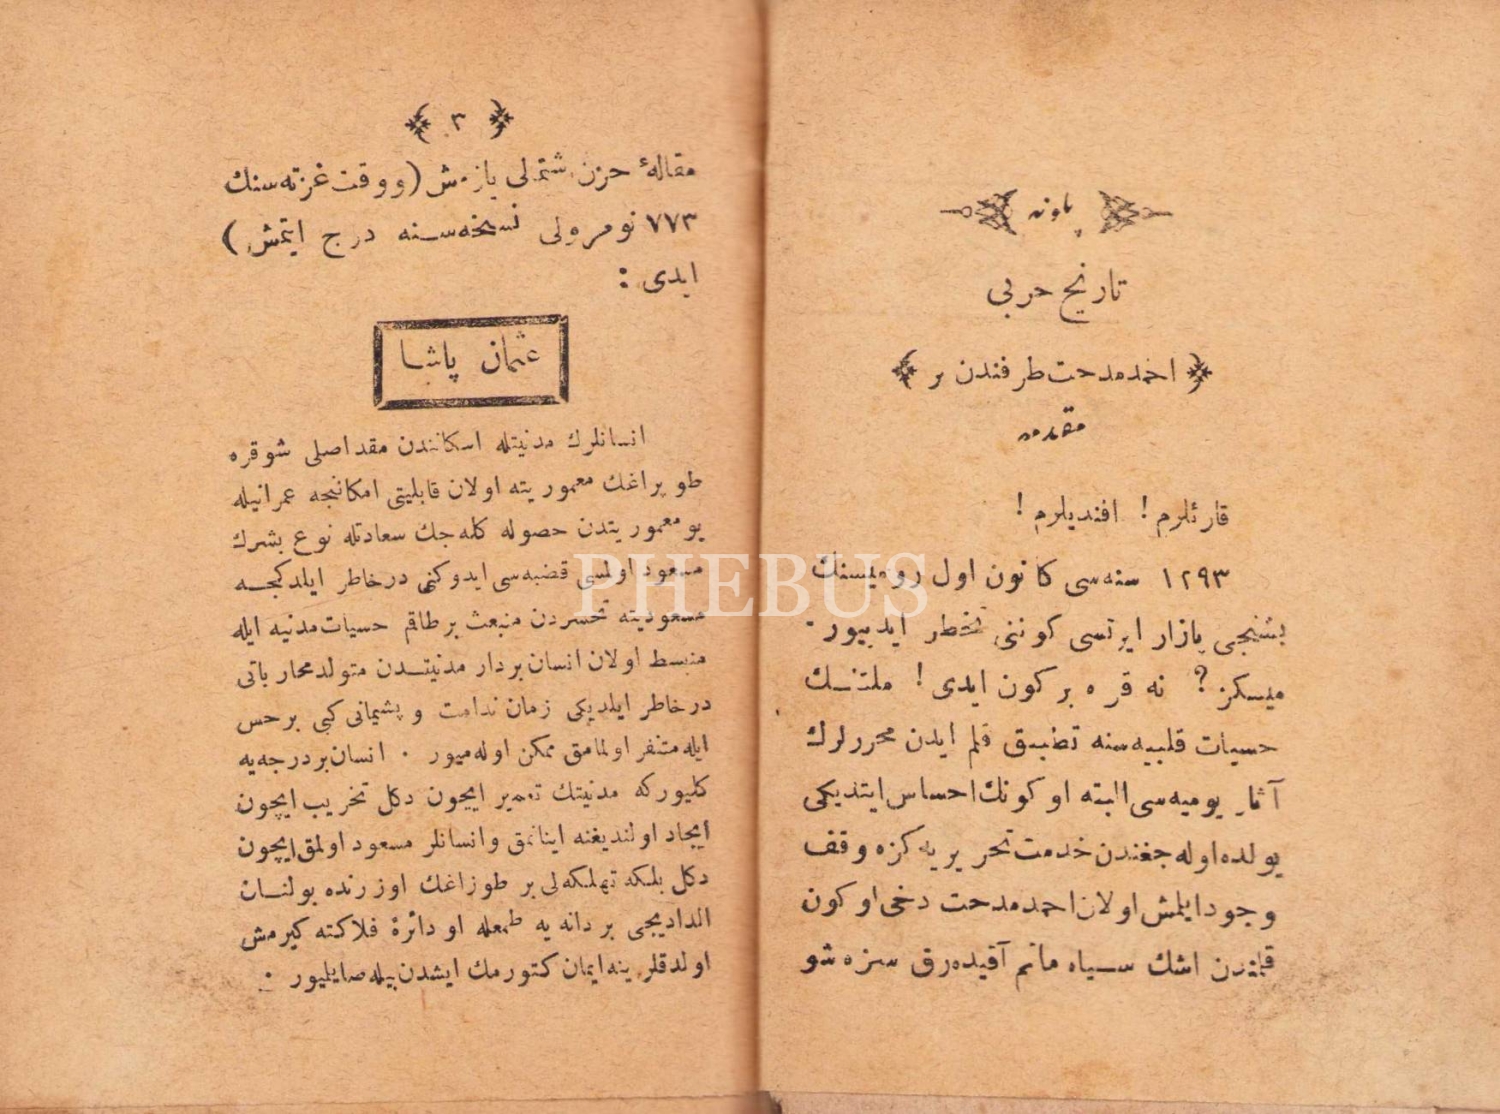 پلونه
تاریخ حربی
احمد مدحت طرفندن بر
مقدمه
قارئلرم ! افندیلرم !
١٢٩٣ سنه‌سی کانون اول رومیسنك
بشنجی پازار ایرتسی کوننی تخطر ایدییور.
میسکز؟ نه قره بر کون ایدی! ملتنك
حسیات قلبیه‌سنه تطبیق قلم ایدن محررلرك
آثار یومیه‌سی البته او کونك احساس ایتدیکی
یولده اوله‌جغندن خدمت تحریریه کزه وقف
وجود ایلمش اولان احمد مدحت دخی او کون
قلمندن اشك سیاه ماتم آقیده‌رق سزه شو
٣
مقالهٔ حزن شتملی یازمش (و وقت غزته‌سنك
٧٧٣ نومرولی نسخه‌سنه درج ایتمش)
ایدی :
عثمان پاشا
انسانلرك مدنیتله اسکانندن مقد اصلی شو قره
طوپراغك معموریته اولان قابلیتی امکانجه عمرانیله
بو معموریتدن حصوله کله‌جك سعادتله نوع بشرك
مسعود اولمسی قضیه‌سی ایدوکنی درخاطر ایلدکجه
مسعودیته تحسردن منبعث بر طاقم حسیات مدنیه ایله
منبسط اولان انسان بردار مدنیتدن متولد محارباتی
درخاطر ایلدیکی زمان ندامت و پشیمانی کبی بر حس
ایله متنفر اولمامق ممکن اوله‌میور . انسان بر درجه‌یه
کلیورکه مدنیتك تعمیر ایچون دکل تخریب ایچون
ایجاد اولندیغنه اینانمق و انسانلر مسعود اولمق ایچون
دکل بلکه تهلکه‌لی بر طوزاغك اوزرنده بولنان
الدادیجی بر دانه یه طمعله او دائرهٔ فلاکته کیرمش
اولدقلرینه ایمان کتورمك ایشدن بیله صایلیور .
PHEBUS